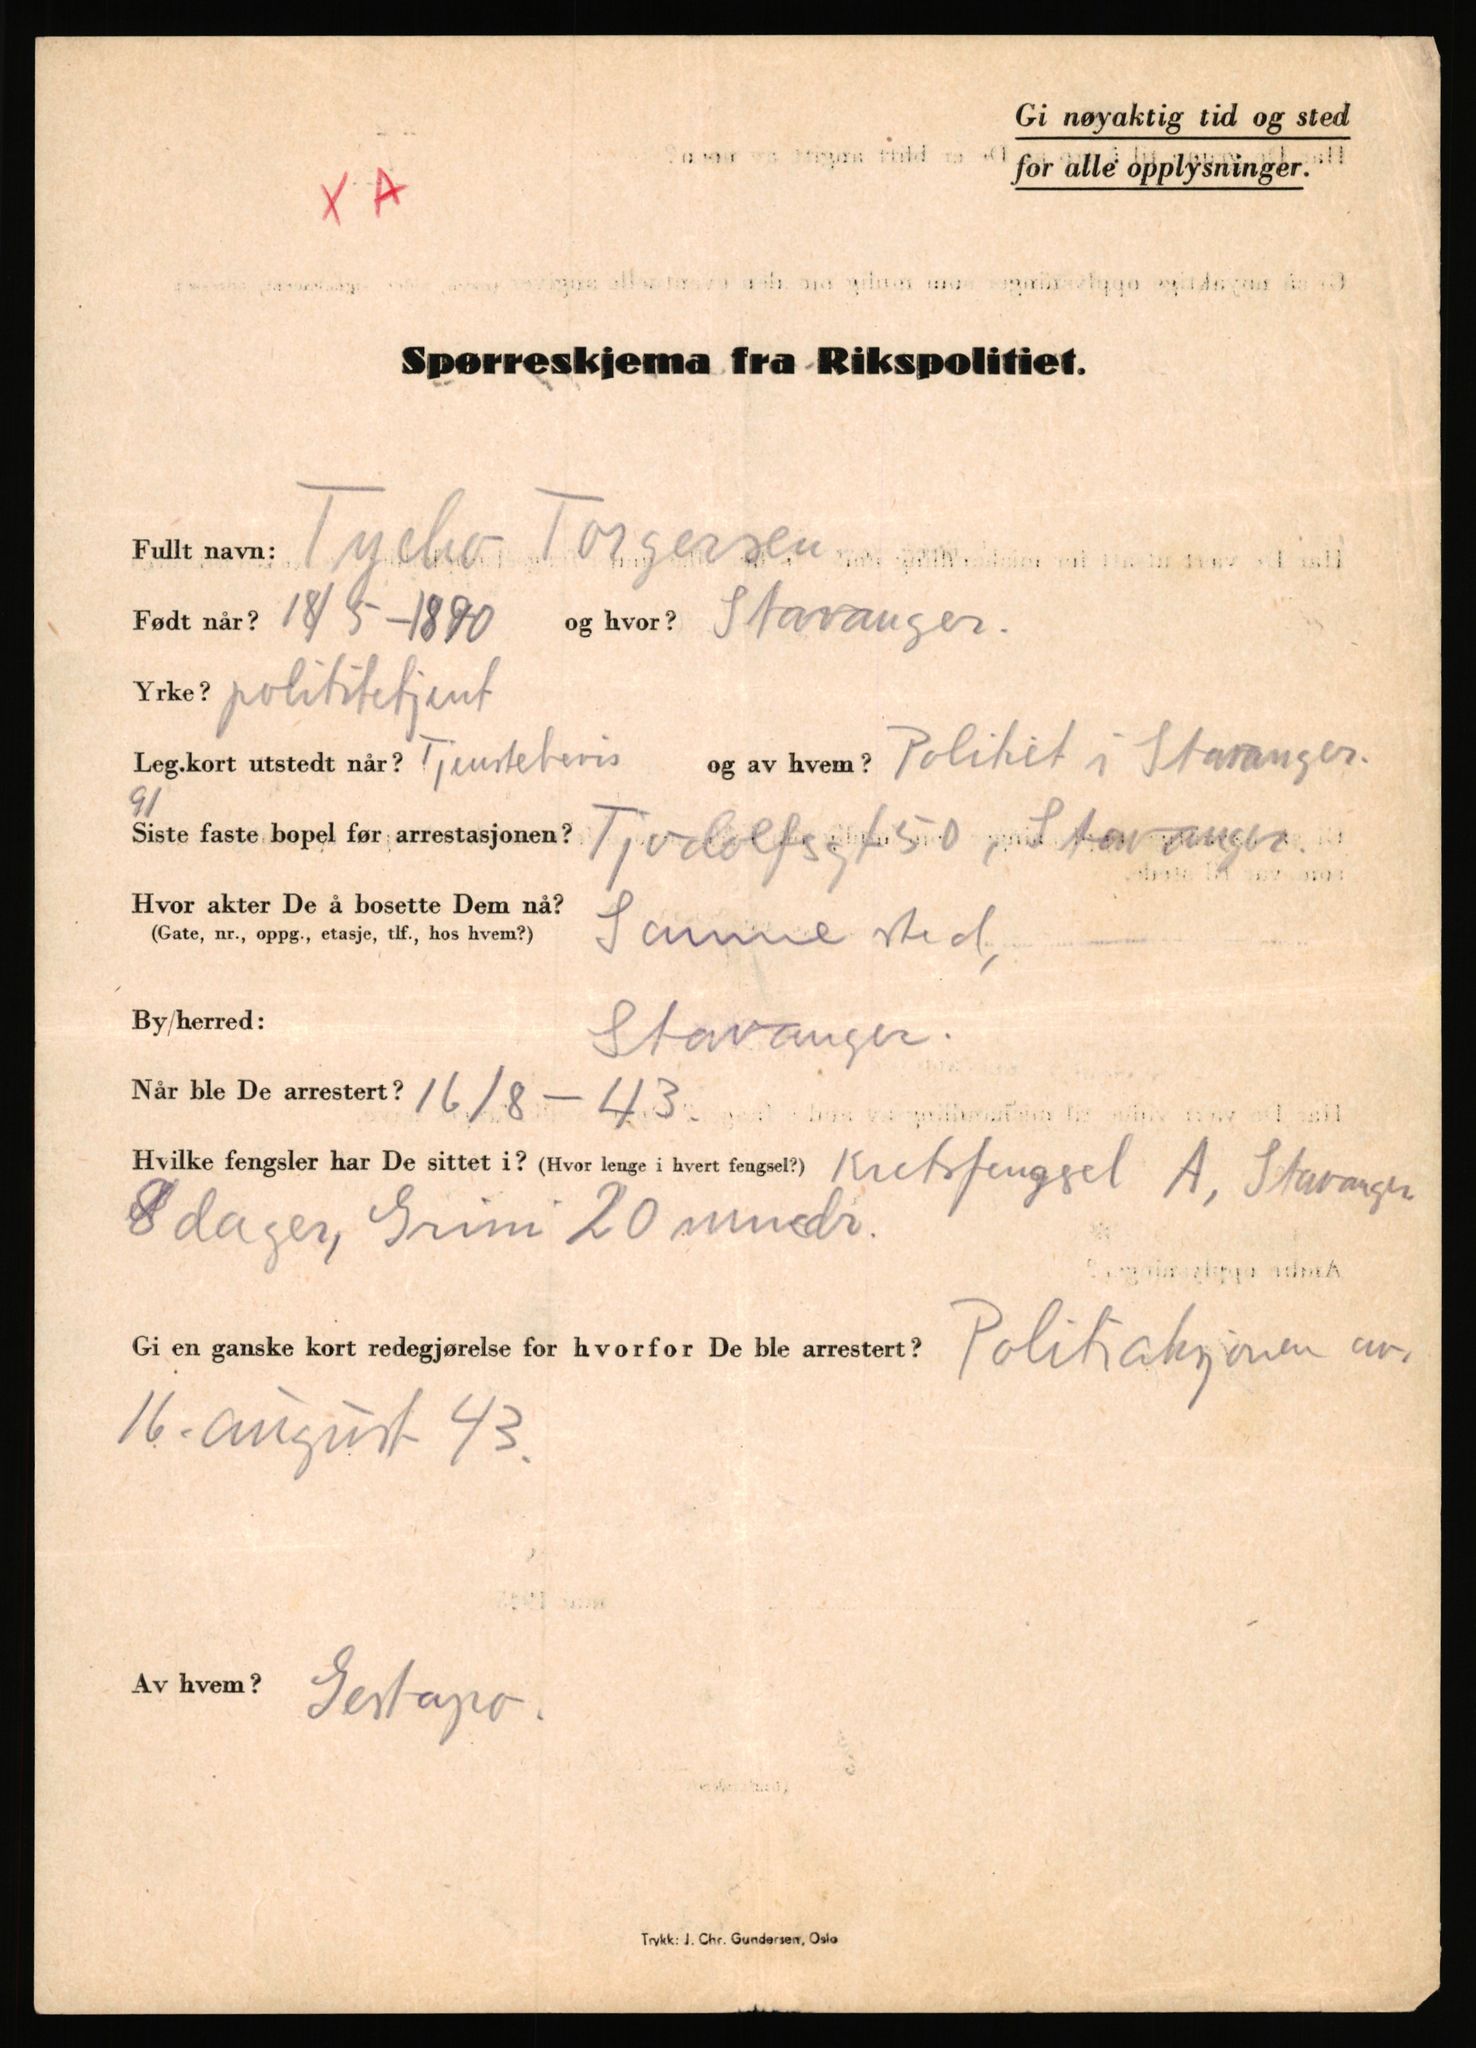 Gi nøyaktig tid og sted
for alle opplysninger.
X A
Spørreskjema fra Rikspolitiet.
Fullt navn: Tycho Torgersen
Født når? 18/5-1890 og hvor? Stavanger.
Yrke? polititetjent
Leg.kort utstedt når? Tjenestebevis og av hvem? Politiet i Stavanger.
91
Siste faste bopel før arrestasjonen? Tjodolfsgt 50, Stavanger.
Hvor akter De å bosette Dem nå? Samme sted,
(Gate, nr., oppg., etasje, tlf., hos hvem?)
By/herred: Stavanger.
Når ble De arrestert? 16/8-43
Hvilke fengsler har De sittet i? (Hvor lenge i hvert fengsel?) Kretsfengsel A, Stavanger
8 dager, Grini 20 mndr.
Gi en ganske kort redegjørelse for hvorfor De ble arrestert? Politiaksjonen av
16. august 43.
Av hvem? Gestapo.
Trykk: J. Chr. Gundersen, Oslo